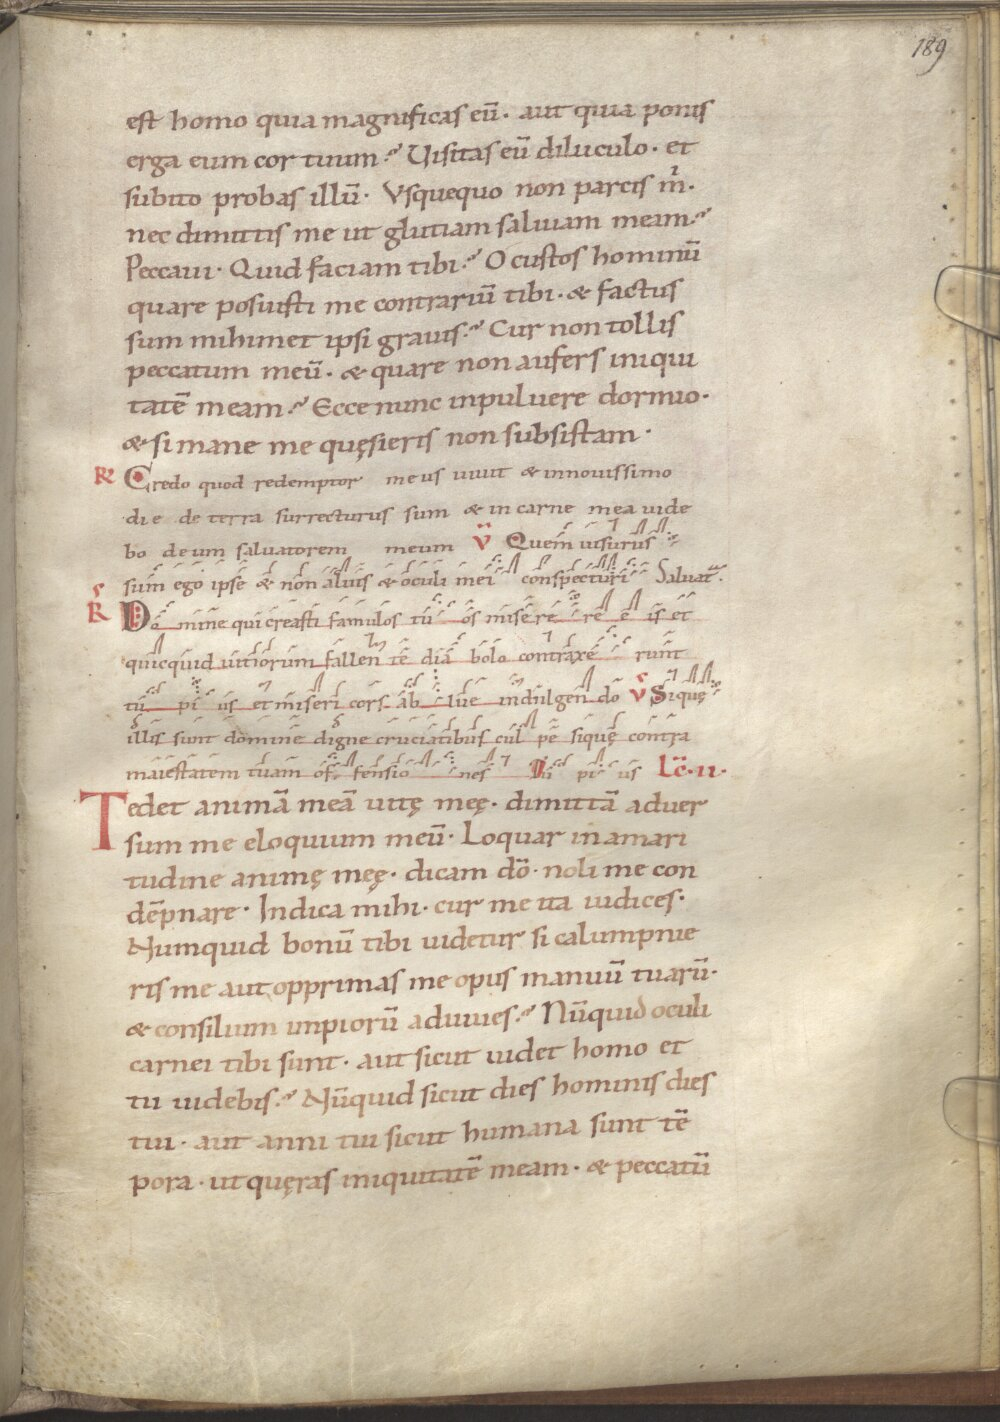 189
est homo quia magnificas eū. aut quia ponis
erga eum cor tuum? Uisitas eū diluculo. et
subito probas illū. Vsquequo non parcis m̄.
nec dimittis me ut glutiam saliuam meam?
Peccaui. Quid faciam tibi? O custos hominū
quare posuisti me contrariū tibi. & factus
sum mihimet ipsi grauis? Cur non tollis
peccatum meū. & quare non aufers iniqui
tatē meam? Ecce nunc inpuluere dormio.
& si mane me quęsieris non subsistam.
R Credo quod redemptor meus uiuit & innouissimo
die de terra surrecturus sum & in carne mea uide
bo deum saluatorem meum V Quem uisurus
sum ego ipse & non alius & oculi mei conspecturi Saluat.
R Domine qui creasti famulos tuos misere re re e is et
quicquid uitiorum fallente diabolo contraxe runt
tu pi us et misericors ab lue indulgendo V Sique
illis sunt domine digne cruciatibus culpe sique contra
maiestatem tuam offensio nes Tu pi us Lc̄.ii.
Tedet animā meā uitę meę. dimittā aduer
sum me eloquium meū. Loquar in amari
tudine animę meę. dicam dō. noli me con
dēpnare. Indica mihi. cur me ita iudices.
Numquid bonū tibi uidetur si calumpnie
ris me aut opprimas me opus manuū tuarū.
& consilium impiorū adiuues? Nūquid oculi
carnei tibi sunt. aut sicut uidet homo et
tu uidebis? Nūquid sicut dies hominis dies
tui. aut anni tui sicut humana sunt tē
pora. ut quęras iniquitatē meam. & peccatū